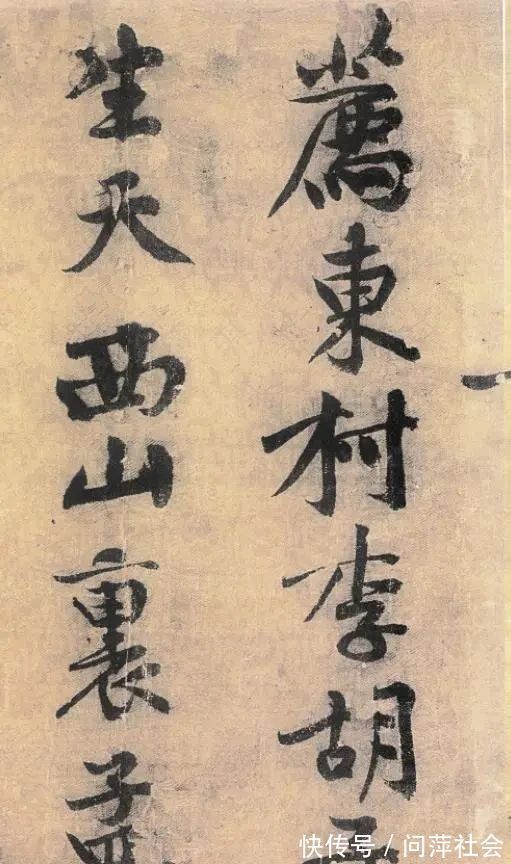 薦東村李胡子
生天西山裏孟
快传号/问萍社会